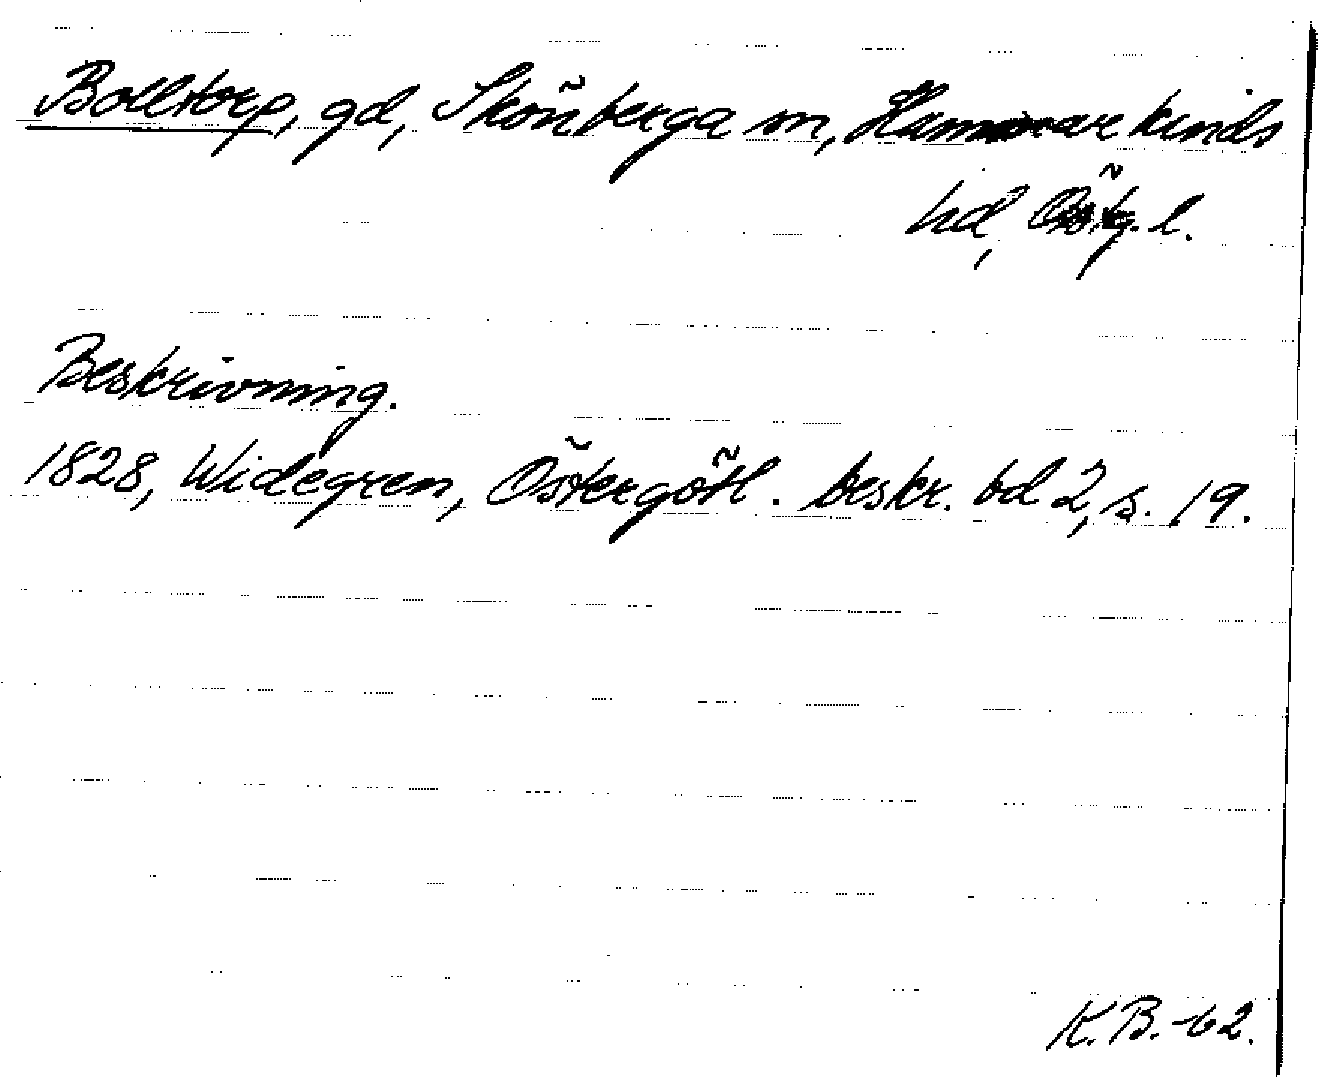 Bolltorp, gd, Skönberga sn, Hammarkinds
hd, Östg. l.
Beskrivning.
1828, Widegren, Östergötl. beskr. bd 2, s. 19.
K.B. -62.